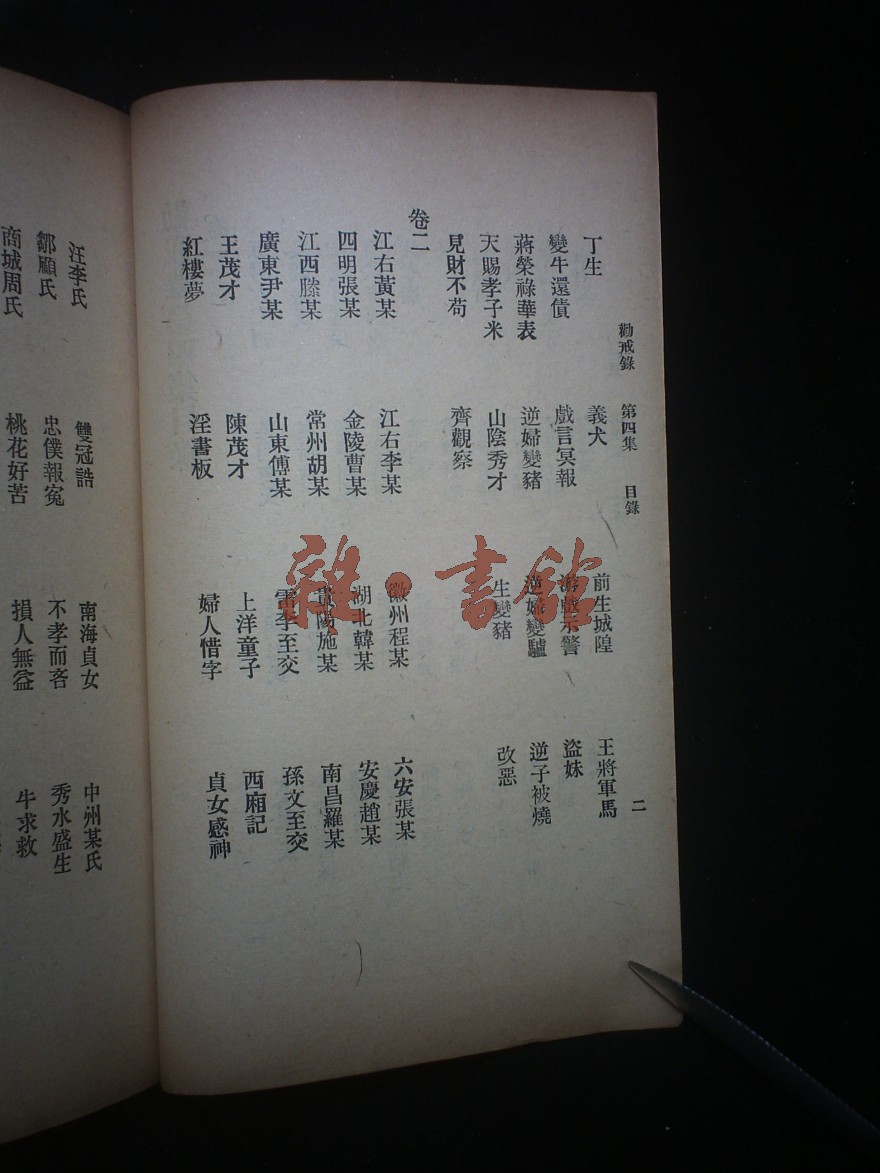 勸戒錄 第四集 目錄 二
丁生 義犬 前生城隍 王將軍馬
變牛還債 戲言冥報 游戲示警 盜妹
蔣榮祿華表 逆婦變豬 逆婦變驢 逆子被燒
天賜孝子米 山陰秀才 生變豬 改惡
見財不苟 齊觀察
卷二
江右黃某 江右李某 徽州程某 六安張某
四明張某 金陵曹某 湖北韓某 安慶趙某
江西滕某 常州胡某 陽施某 南昌羅某
廣東尹某 山東傅某 李至交 孫文至交
王茂才 陳茂才 上洋童子 西廂記
紅樓夢 淫書板 婦人惜字 貞女感神
汪李氏 雙冠誥 南海貞女 中州某氏
鄒顧氏 忠僕報冤 不孝而吝 秀水盛生
商城周氏 桃花好苦 損人無益 牛求救
雜·書館